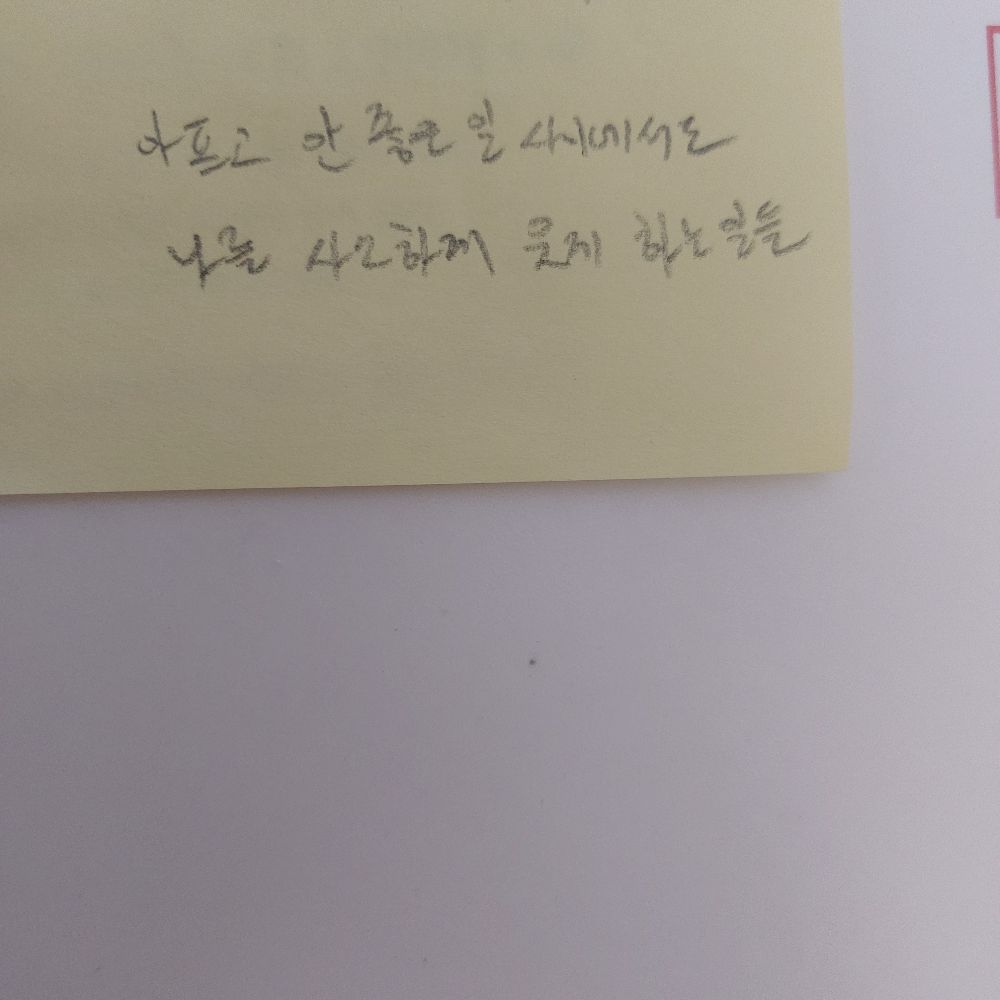 아프고 안 좋은 일 사이에서도
나를 사소하게 웃게 하는 일들